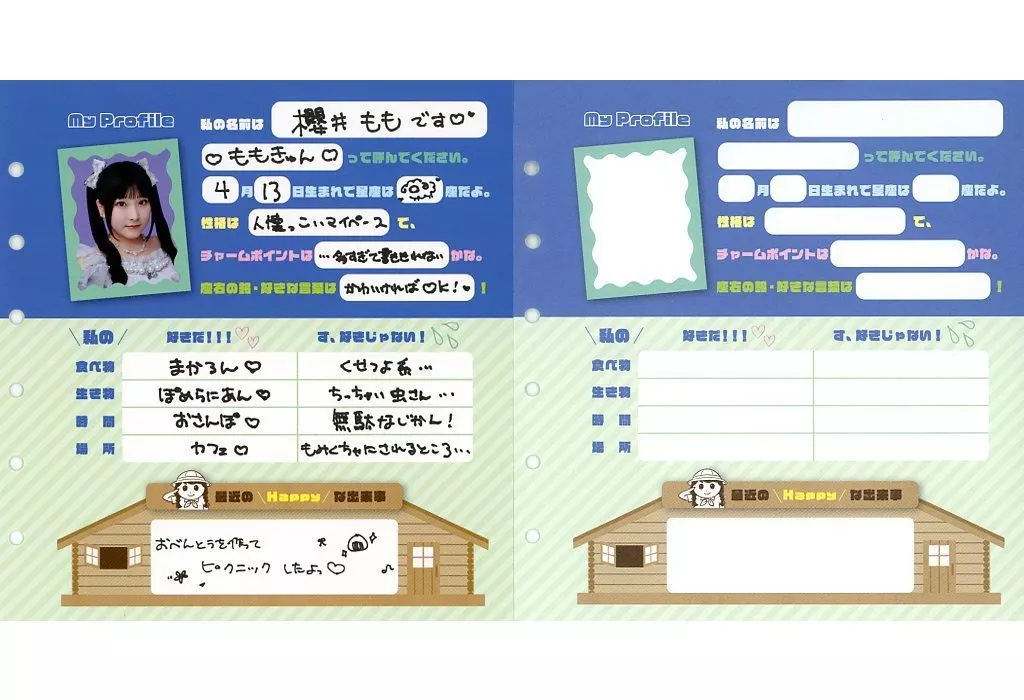 My Profile
私の名前は 櫻井 ももです♡♥
♡ももきゅん♡ って呼んでください。
4月13日生まれで星座は 座だよ。
性格は 人懐っこいマイペース で、
チャームポイントは …多すぎて書ききれない かな。
座右の銘・好きな言葉は かわいければOK!♥ !
\私の/ 好きだ!!! す、好きじゃない!
食べ物 まかろん♡ くせつよ系…
生き物 ぽめらにあん♡ ちっちゃい虫さん…
時間 おさんぽ♡ 無駄なじかん!
場所 カフェ♡ もみくちゃにされるところ…
最近の \Happy/ な出来事
おべんとうを作って
ピクニック したよっ♡ ♪
My Profile
私の名前は
って呼んでください。
月 日生まれで星座は 座だよ。
性格は で、
チャームポイントは かな。
座右の銘・好きな言葉は !
\私の/ 好きだ!!! す、好きじゃない!
食べ物
生き物
時間
場所
最近の \Happy/ な出来事